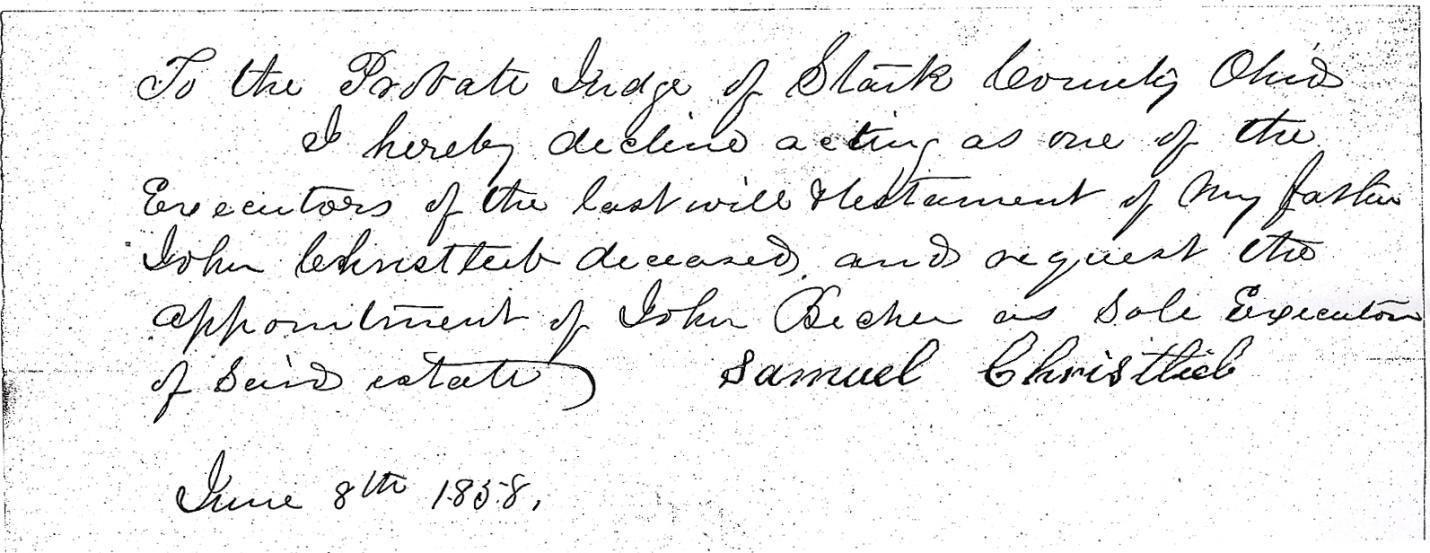 To the Probate Judge of Stark County Ohio
I hereby decline acting as one of the
Executors of the last will & testament of my father
John Christlieb deceased, and request the
appointment of John Becher as Sole Executor
of Said estate
Samuel Christlieb
June 8th 1858,